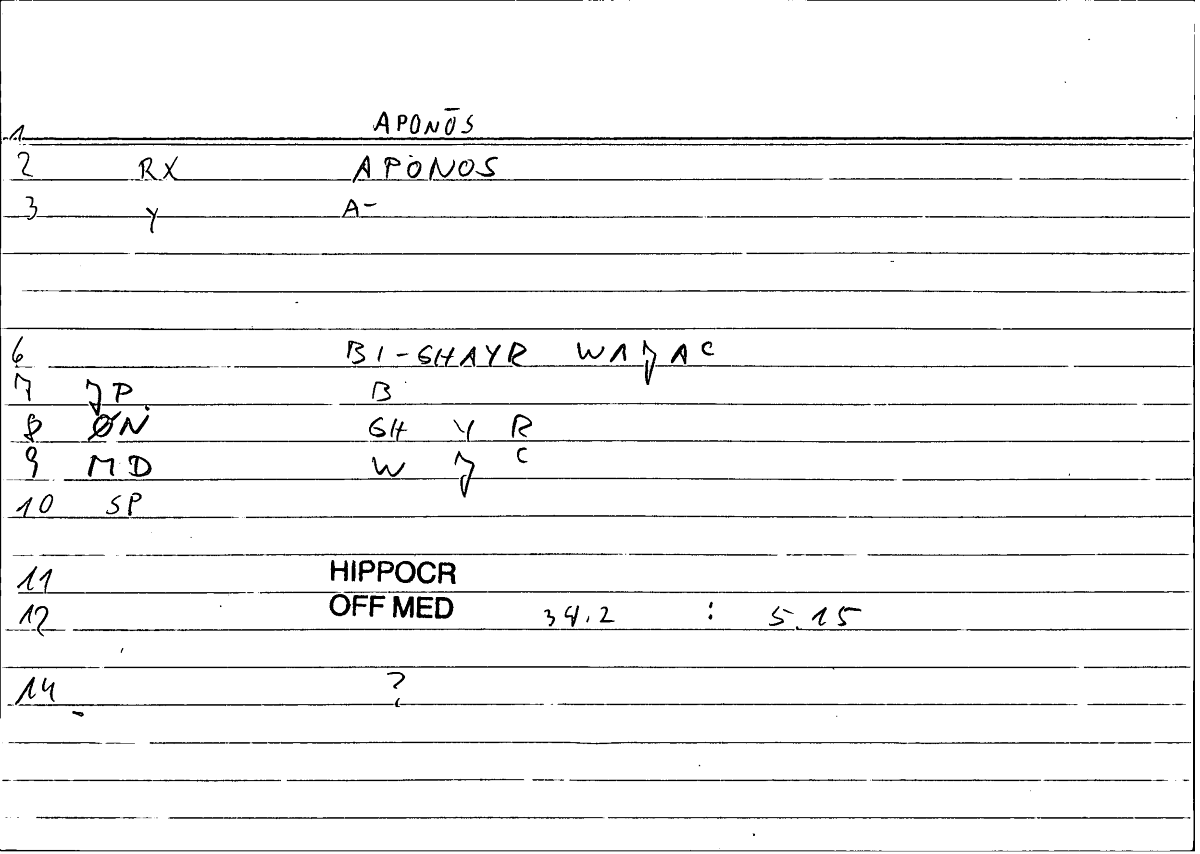 1 APONŌS
2 RX APONOS
3 Y A-
6 BI-GHAYR WAJAC
7 JP. B
8 ØN GH Y R
9 MD W J C
10 SP
11 HIPPOCR
12 OFF MED 34.2 : 5.15
14 ?